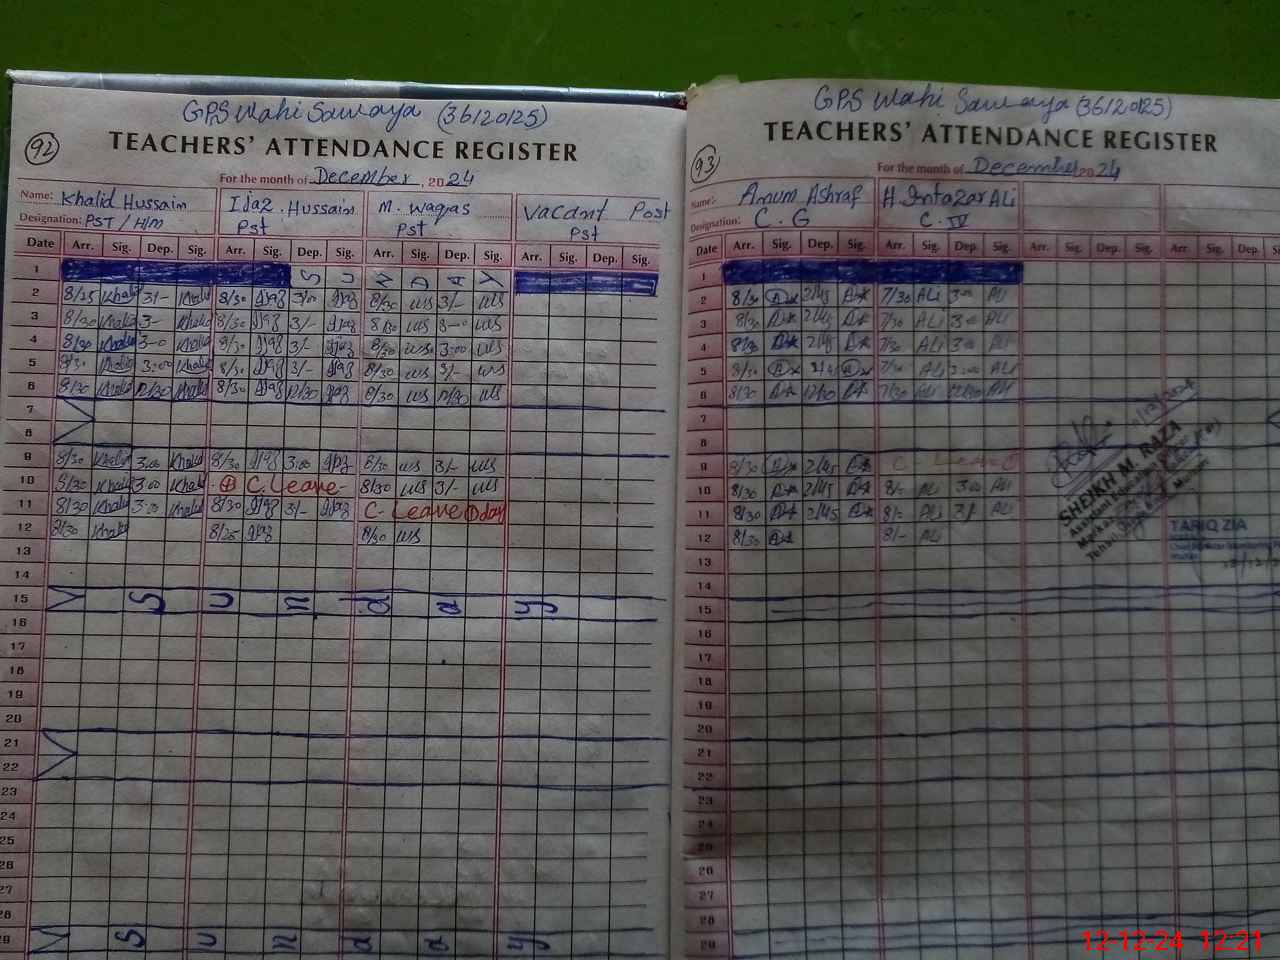 GPS Wahi Sawaya (36120125)
92
TEACHERS' ATTENDANCE REGISTER
For the month of December, 2024
Name: Khalid Hussain Ijaz Hussain M. Waqas Vacant Post
Designation: PST / H/M Pst Pst Pst
Date Arr. Sig. Dep. Sig. Arr. Sig. Dep. Sig. Arr. Sig. Dep. Sig. Arr. Sig. Dep. Sig.
1 S U N D A Y
2 8/25 Khalid 3/- Khalid 8/30 Ijaz 3/00 Ijaz 8/30 WS 3/- WS
3 8/30 Khalid 3- Khalid 8/30 Ijaz 3/- Ijaz 8/30 WS 3-00 WS
4 8/30 Khalid 3-0 Khalid 8/30 Ijaz 3/- Ijaz 8/30 WS 3:00 WS
5 8/30 Khalid 3:00 Khalid 8/30 Ijaz 3/- Ijaz 8/30 WS 3/- WS
6 8/30 Khalid 12/30 Khalid 8/30 Ijaz 12/30 Ijaz 8/30 WS 12/30 WS
7
8
9 8/30 Khalid 3:00 Khalid 8/30 Ijaz 3:00 Ijaz 8/30 WS 3/- WS
10 8/30 Khalid 3:00 Khalid C. Leave- 8/30 WS 3/- WS
11 8/30 Khalid 3:00 Khalid 8/30 Ijaz 3/- Ijaz C- Leave 1 day
12 8/30 Khalid 8/25 Ijaz 8/30 WS
13
14
15 S u n d a y
16
17
18
19
20
21
22
23
24
25
26
27
28
29 S u n d a y
GPS Wahi Sawaya (36120125)
93
TEACHERS' ATTENDANCE REGISTER
For the month of December 2024
Name: Anum Ashraf H. Intazar Ali
Designation: C. G C. IV
Date Arr. Sig. Dep. Sig. Arr. Sig. Dep. Sig. Arr. Sig. Dep. Sig. Arr. Sig. Dep.
1
2 8/30 2/45 7/30 ALi 3:00 ALi
3 8/30 2/45 7/30 ALi 3:00 ALi
4 8/30 2/45 7/30 ALi 3:00 ALi
5 8/30 2/45 7/30 ALi 3:00 ALi
6 8/30 12/30 7/30 ALi 12/30 ALi
7
8
9 8/30 2/45 C Leave
10 8/30 2/45 8/- ALi 3:00 ALi
11 8/30 2/45 8/- ALi 3/- ALi
12 8/30 8/- ALi
13
14
15
16
17
18
19
20
21
22
23
24
25
26
27
28
29
SHEIKH M. RAZA
Assistant Education
Markaz
Tehsil
TARIQ ZIA
12-12-24 12:21